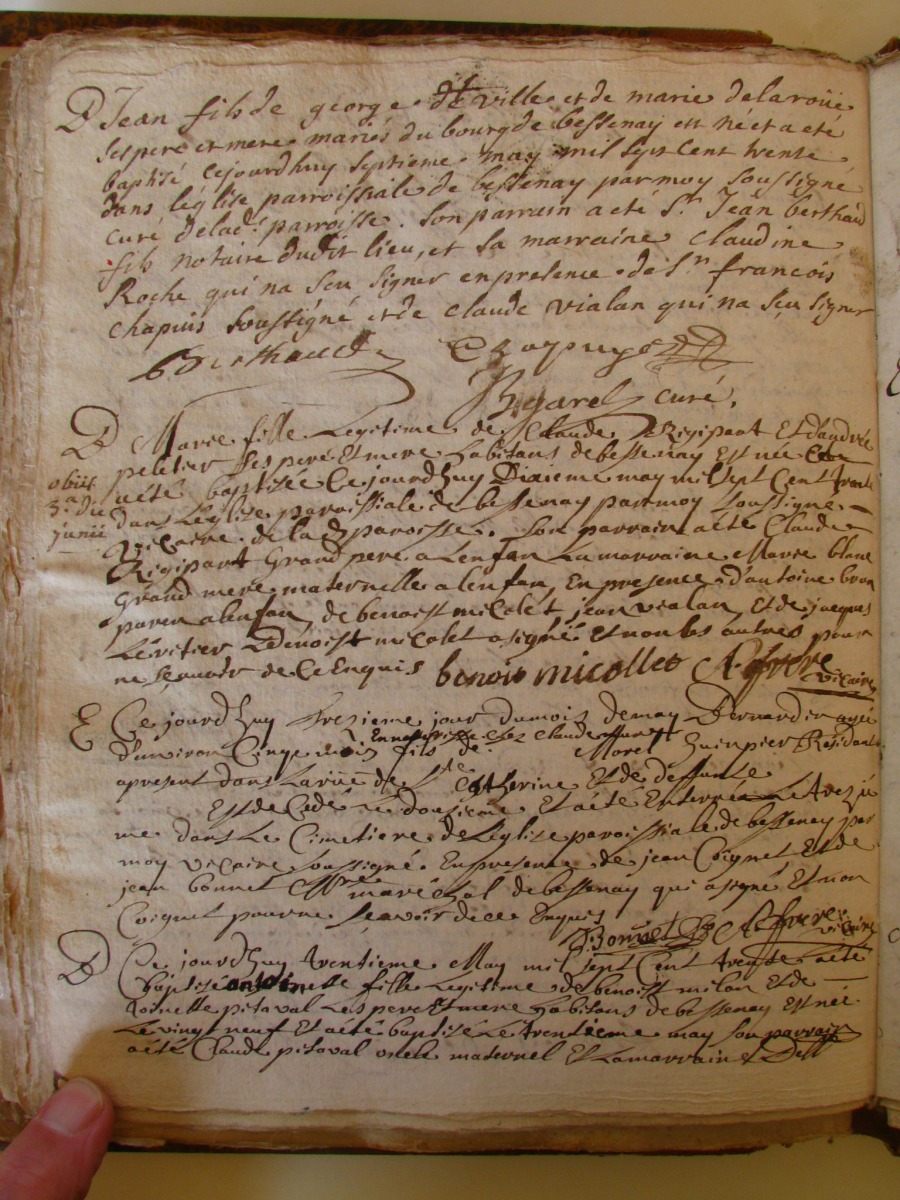 B Jean fils de george de ville et de marie delaroüe
ses pere et mere mariés du bourg de bessenay est né et a eté
baptisé cejourdhuy septieme may mil sept cent trente
dans léglise parroissiale de bessenay par moy soussigné
curé de lad. parroisse. son parrain a eté Sr. Jean berthaud
fils notaire dudit lieu, et sa marraine claudine
Roche qui na seu signer en presence de Sr. francois
chapuis soussigné et de claude vialan qui na seu signer
Berthaud Chapuys
Bgarel curé.
B Marie fille Legitime de Claude Rigipart Et dandrée
peletier ses pere Et mere habitans de bessenay Est née
aété baptisée Ce jourdhuy Dixieme may mil sept Cent trente
obiit 3a die junii
dans Léglise paroissiale de bessenay par moy soussigné
vicaire de lad paroisse. Son parrain a eté Claude
Rigipart Grand pere a Lenfan La marraine Marie blanc
Grand mere maternelle a lenfan, En presence dantoine brun
paren a lenfan, de benoist micolet, jean vialan, Et de jacques
Léritier Ledenoist micolet a signé Et non les autres pour
ne sçavoir de Ce Enquis benoit micollet vicaire
E Ce jourdhuy tresieme jour du mois de may Bernardin agée
Ennourrisse chez claude
denviron Cinqe mois fils de Morel Guinpier Residant
apresent dans La rüe de Ste Catherine Et de deffunte
Est decedé le dousieme Et aété Enterrée Le tresie
me dans Le Cimetiere de Léglise paroissiale de bessenay par
moy vicaire soussigné. En presence de jean Coignet Et de
jean bonnet Mre maréchal de bessenay qui a signé Et non
Coignet pour ne sçavoir de ce Enquis
Bonnet vicaire
B Ce jourdhuy trentieme May mil sept Cent trente aété
Baptisé antoinette fille Legitime de benoist milan Et de
pitaval Les pere Et mere habitans de bessenay Est née
Le vingt neuf Et aété baptisée Le trentieme may son parrain
aété Claude pitaval oncle maternel Et La marraine